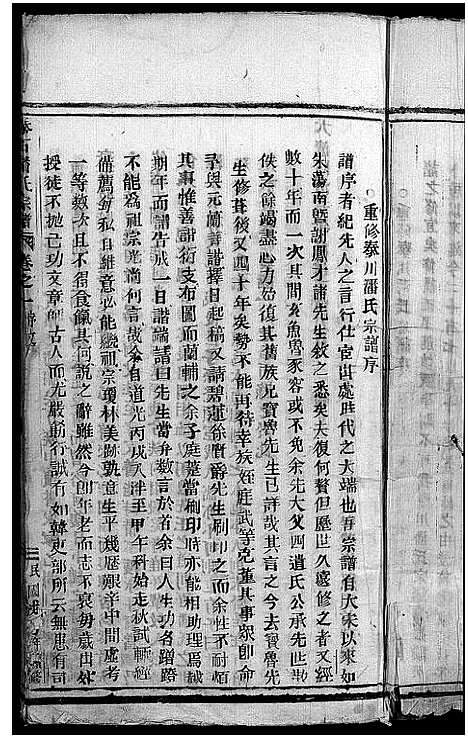 重修泰川潘氏宗譜序
譜序者紀先人之言行仕宦出處胜代之大端也吾宗譜自大宋以來如
朱蕩南暨謝鳳才諸先生敘之悉矣夫復何贅但歷世久遠修之者又經
數十年而一次其間亥魚魯豕容或不免余先大父四道氏公承先世散
佚之餘竭盡心力始復其舊族兄寶魯先生已詳哉其言之今去寶魯先
生修葺後又四十年矣勢不能再待幸族姪庭武等克董其事衆即命
予與元蘭善譜擇日起稿又請碧蓮徐賢爵先生刷印之而余性不耐煩
其事惟善譜衍支布圖而蘭輔之余子庭蓂當刷印時亦能相助理焉越
期年而譜告成一日諧端請曰先生當弁數言於首余曰人生功名蹭蹬
不能為祖宗光尚何言哉余自道光丙戌入泮至甲午科始走秋試輒經
備薦竊私自維意必能繼祖宗瓊林美跡孰意生平幾歷艱辛中間虛考
一等數次且不得食餼其何說之辭雖然今即年老而志不衰每歲出外
授徒不拋己功文章師古人而尤嚴躬行誠有如韓吏部所云無患有司
潘氏宗譜 卷之一
民國